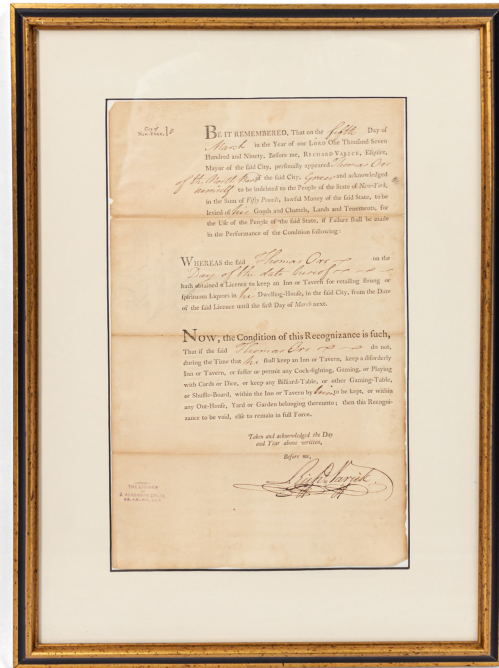 City of
New-York, ss
BE IT REMEMBERED, That on the fifth Day of
March in the Year of our LORD One Thousand Seven
Hundred and Ninety, Before me, RICHARD VARICK, Esquire,
Mayor of the said City, personally appeared Thomas Orr
of the Ward of the said City, Grocer and acknowledged
himself to be indebted to the People of the State of New-York,
in the Sum of Fifty Pounds, lawful Money of the said State, to be
levied of his Goods and Chattels, Lands and Tenements, for
the Use of the People of the said State, if Failure shall be made
in the Performance of the Condition following:
WHEREAS the said Thomas Orr on the
Day of the date hereof
hath obtained a Licence to keep an Inn or Tavern for retailing strong or
spirituous Liquors in his Dwelling-House, in the said City, from the Date
of the said Licence until the first Day of March next.
NOW, the Condition of this Recognizance is such,
That if the said Thomas Orr do not,
during the Time that he shall keep an Inn or Tavern, keep a disorderly
Inn or Tavern, or suffer or permit any Cock-fighting, Gaming, or Playing
with Cards or Dice, or keep any Billiard-Table, or other Gaming-Table,
or Shuffle-Board, within the Inn or Tavern by him to be kept, or within
any Out-House, Yard or Garden belonging thereunto; then this Recogni-
zance to be void, else to remain in full Force.
Taken and acknowledged the Day
and Year above written,
Before me,
Richd Varick
THE LIBRARY